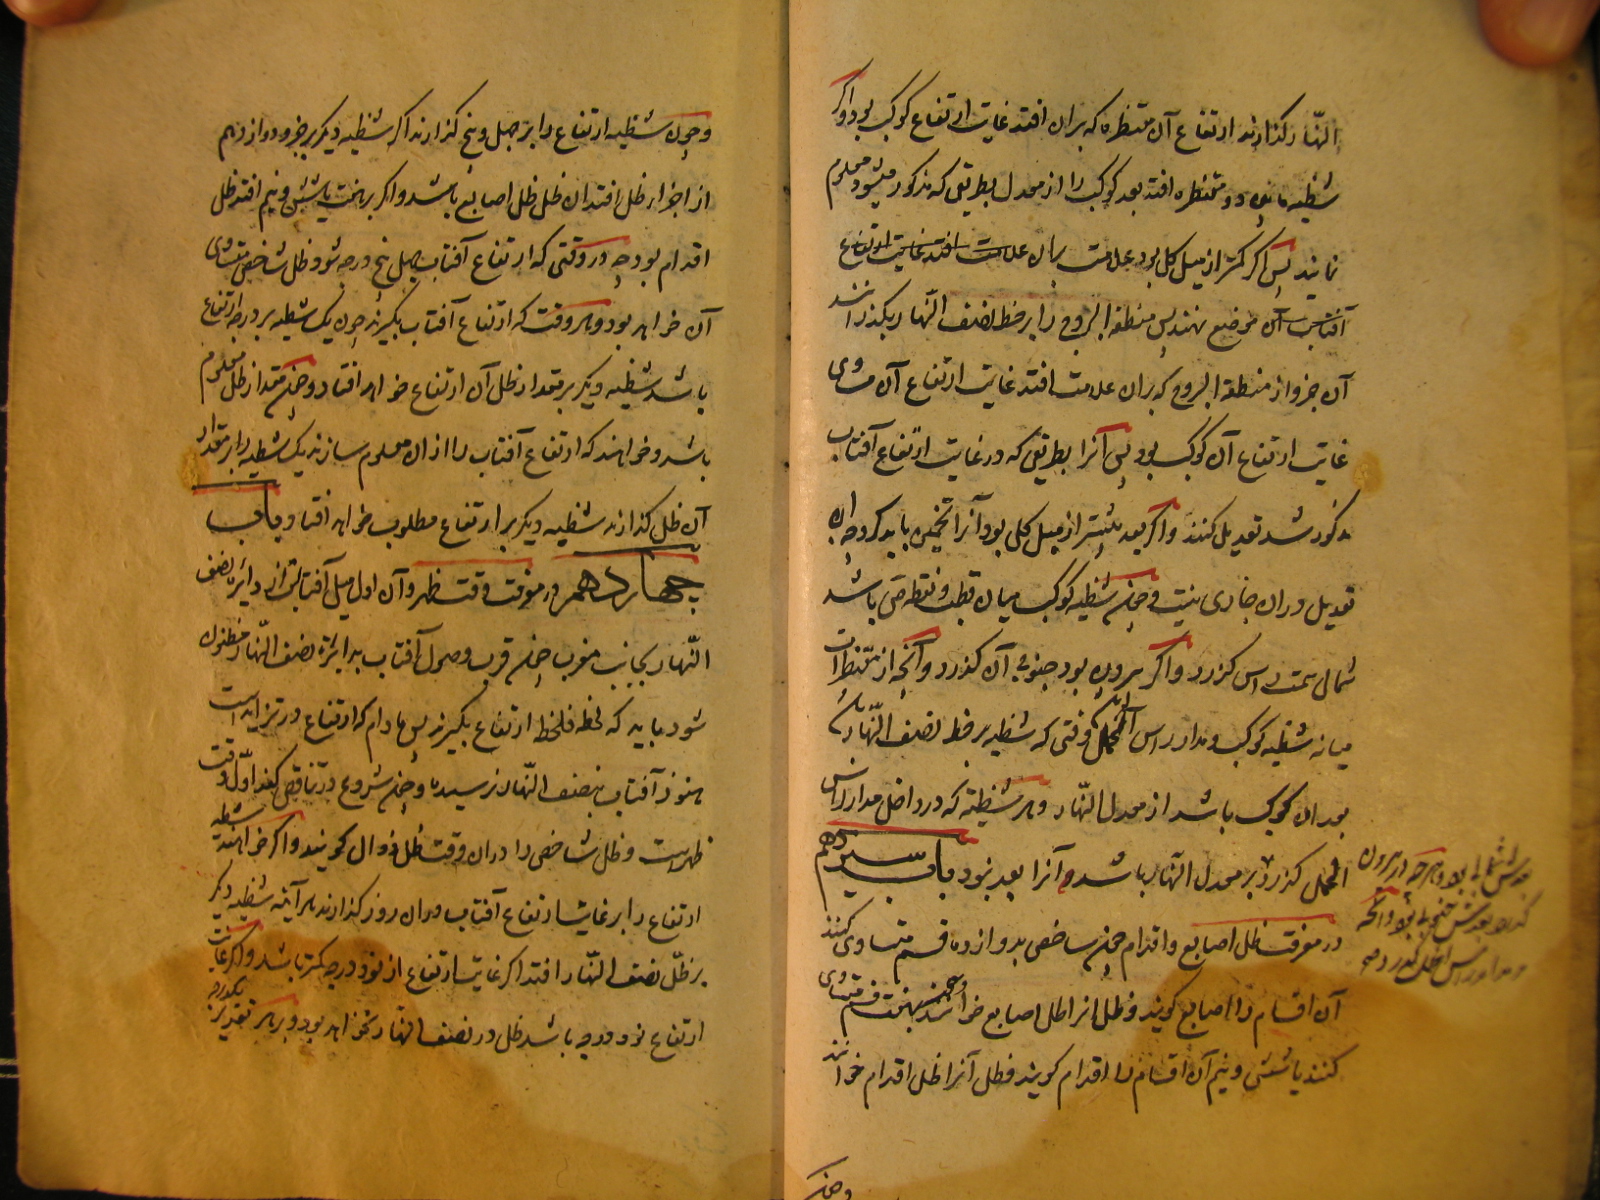 النّهار گذارند ارتفاع آن مقنطره که بران افتد غایت ارتفاع کوکب بود و اگر
شظیه میانه دو مقنطره افتد بعد کوکب را از معدل بطریقی که مذکور میشود معلوم
نمایند پس اگر کمتر از میل کل بود علامت بران علامت افتد غایت ارتفاع
آفتاب آن موضع نهند پس منطقة البروج را بر خط نصف النّهار بگذرانند
آن جزو از منطقة البروج که بران علامت افتد غایت ارتفاع آن مساوی
غایت ارتفاع آن کوکب بود پس آنرا بطریقی که در غایت ارتفاع آفتاب
مذکور شد تعدیل کنند و اگر بعد بیشتر از میل کلی بود آنرا تخمین باید کرد چه این
تعدیل دران جاری نیست و چون شظیه کوکب میان قطب و نقطه ص باشد
شمال سمت راس گذرد و اگر بیرون بود جنوبی آن گذرد و آنچه از مقنطرات
میانه شظیه کوکب و مدار راس الحمل افتد وقتی که شظیه بر خط نصف النّهار باشد
بعد آن کوکب باشد از معدل النّهار و هر شظیه که در داخل مدار راس
الحمل گذرد بر معدل النّهار باشد و آنرا بعد نبود باب سیزدهم
بعدش شمالی بود و هرچه از بیرون
گذرد بعدش جنوبی بود و آنچه
در مدار راس الحمل گذرد
در معرفت ظل اصابع و اقدام چون شاخصی بدوازده قسم متساوی کنند
آن اقسام را اصابع گویند و ظل انرا ظل اصابع خوانند و چون بهفت قسم متساوی
کنند یا شش و نیم آن اقسام را اقدام گویند و ظل آنرا ظل اقدام خوانند
و چون
و چون شظیه ارتفاع را بر چهل و پنج گذارند اگر شظیه دیگر بر جزو دوازدهم
از اجزاء ظل افتد ان ظل ظل اصابع باشد و اگر بر هفت یا شش و نیم افتد ظل
اقدام بود چه در وقتی که ارتفاع آفتاب چهل پنج درجه شود ظل شاخص مساوی
آن خواهد بود و هر وقت که ارتفاع آفتاب بگیرند چون یک شظیه بر درجه ارتفاع
باشد شظیه دیگر بر مقدار ظل آن ارتفاع خواهد افتاد و چون مقدار ظل معلوم
باشد و خواهند که ارتفاع آفتاب را ازان معلوم سازند یک شظیه را بر مقدار
آن ظل گذارند شظیه دیگر بر ارتفاع مطلوب خواهد افتاد باب
چهاردهم در معرفت وقت ظهر و آن اول میل آفتابست از دایره نصف
النّهار بجانب مغرب چون قرب وصول آفتاب بدایره نصف النّهار مظنون
شود باید که لحظه فلحظه ارتفاع بگیرند پس مادام که ارتفاع در تزاید است
هنوز آفتاب بنصف النّهار نرسیده و چون شروع در تناقص کند اوّل وقت
ظهرست و ظل شاخص را دران وقت ظل زوال گویند و اگر خواهند شظیه
ارتفاع را بر غایت ارتفاع آفتاب دران روز گذارند هر آینه شظیه دیگر
بر ظلّ نصف النّهار افتد اگر غایت ارتفاع از نود درجه کمتر باشد و اگر غایت
ارتفاع نود درجه باشد ظل در نصف النّهار نخواهد بود و بهر تقدیر